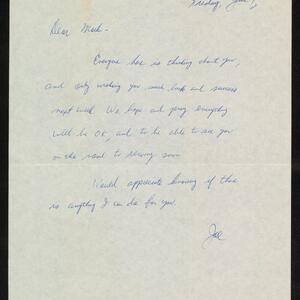 Dear
Everyone here is thinking about you,
and wishing you much luck and success
next week. We hope and pray everything
will be OK, and to be able to see you
on the road to recovery soon.
Would appreciate knowing if there
is anything I can do for you.